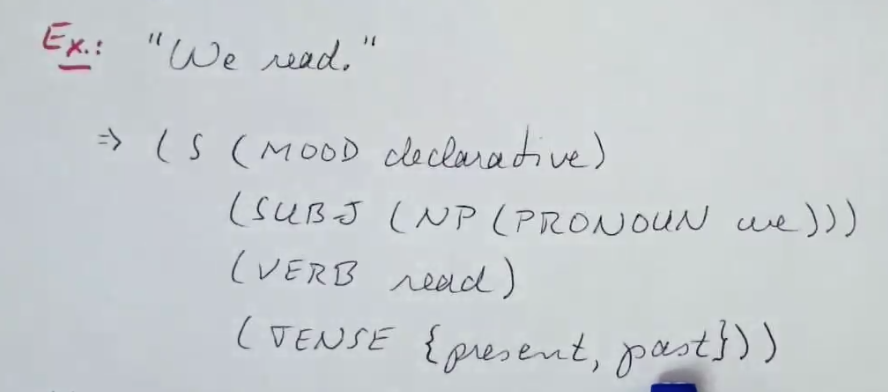 Ex.: "We read."
⇒ (S (MOOD declarative)
(SUBJ (NP (PRONOUN we)))
(VERB read)
(TENSE {present, past}))